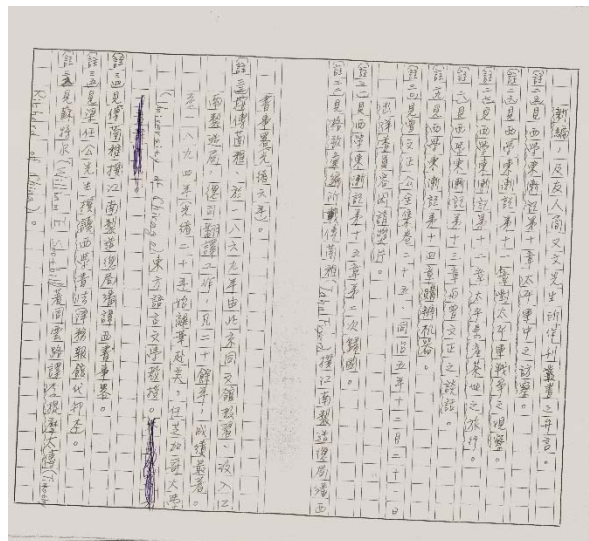 新編，及友人簡又文先生所選刊叢書之弁言。
(註一五)見西學東漸記第十章太平軍中之訪察。
(註一六)見西學東漸記第十一章對太平軍戰爭之觀察。
(註一七)見西學東漸記第十二章太平縣產茶地之旅行。
(註一八)見西學東漸記第十三章與曾文正之談話。
(註一九)見西學東漸記第十四章購辦机器。
(註二〇)見曾文正公全集卷二十五，同治五年十二月二十一日
(註二一)見西學東漸記第十五章第二次歸國。
(註二二)見格致彙編所載傅蘭雅(John Fryer)撰江南製造總局繙譯西
書事畧光緒六年。
(註二三)按傅蘭雅，於一八六九年由北京同文館教習，改入江
南製造局，僱司翻譯工作，凡二十餘年，成績最著。
至一八九四年光緒二十年始離華赴美，任芝加哥大學
(University of Chicago)東方語言文學教授。
(註二四)見傅蘭雅撰江南製造總局繙譯西書事畧。
(註二五)見梁任公先生撰讀西學書法譯務報館代印本。
(註二六)見蘇特尔(William E. Soothill)着周雲路譯李提摩太傳(Timothy
Richard of China)。